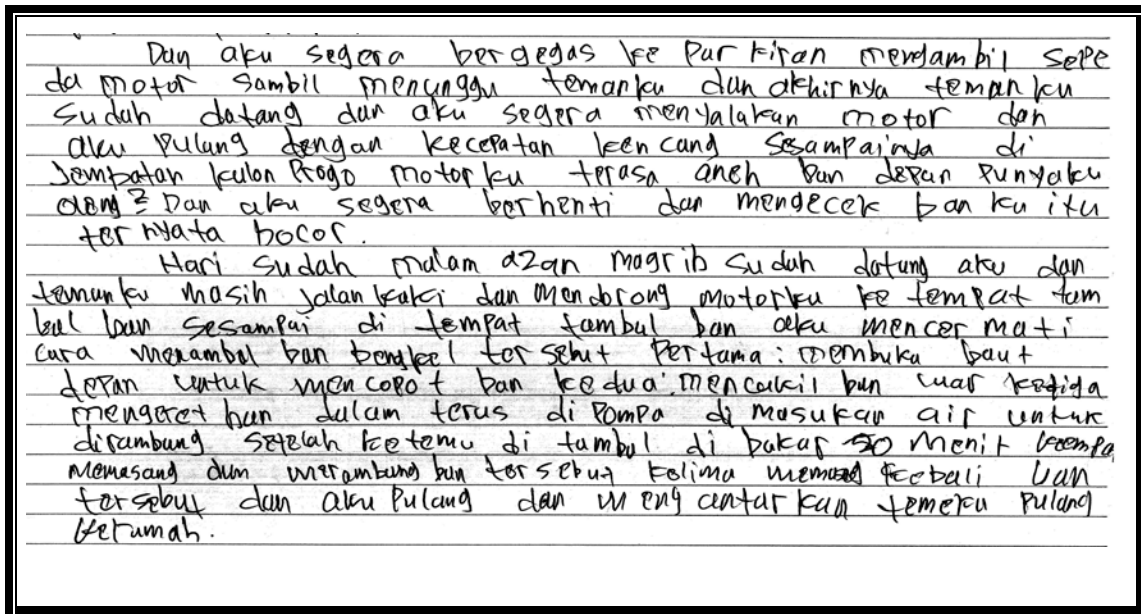 Dan aku segera bergegas ke Parkiran mengambil sepe
da motor sambil menunggu temanku dan akhirnya temanku
sudah datang dan aku segera menyalakan motor dan
aku pulang dengan kecepatan kencang Sesampainya di
Jembatan kulon Progo motorku terasa aneh ban depan Punyaku
Dan aku segera berhenti dan mengecek ban ku itu
ternyata bocor.
Hari sudah malam azan magrib sudah datang aku dan
temanku masih jalan kaki dan mendorong motorku ke tempat tam
bal ban sesampai di tempat tambal ban aku mencermati
cara menambal ban bengkel tersebut Pertama: membuka baut
depan untuk mencopot ban kedua: mencukil ban luar ketiga
mengeret ban dalam terus di Pompa di masukan air untuk
dirambang setelah ketemu di tambal di bakar 30 menit keempa
memasang dan merambang ban tersebut kelima memasag kebali ban
tersebut dan aku Pulang dan mengantarkan temeku Pulang
kerumah.